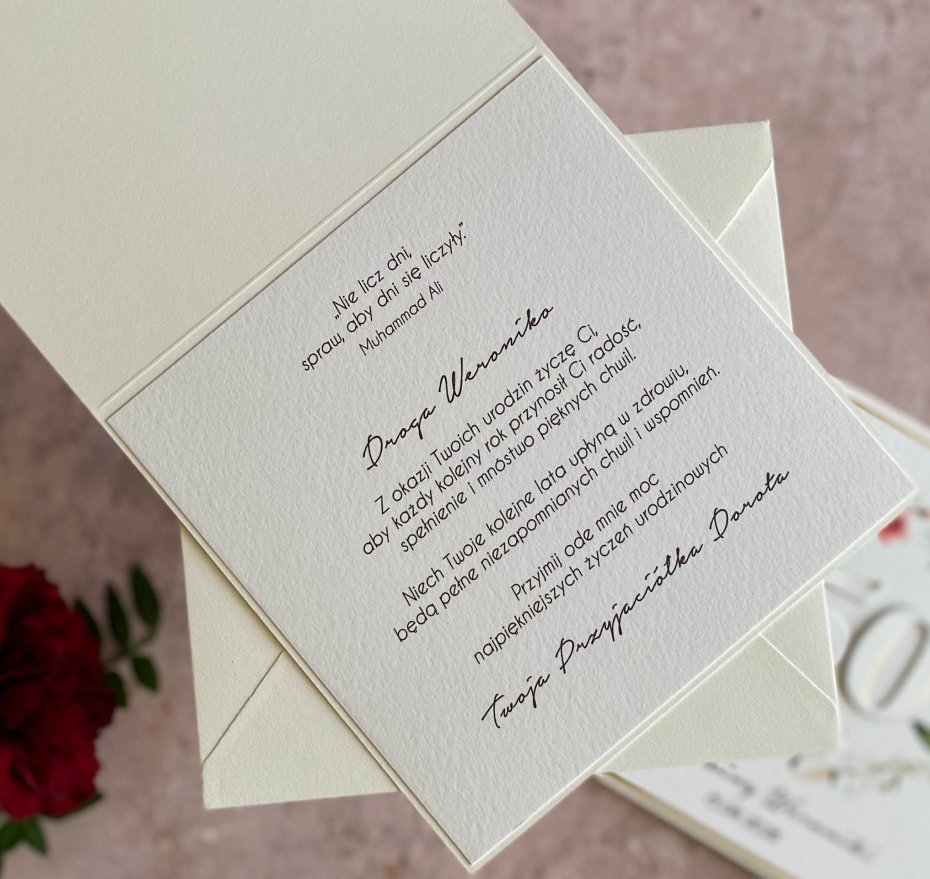 „Nie licz dni,
spraw, aby dni się liczyły."
Muhammad Ali
Droga Weroniko
Z okazji Twoich urodzin życzę Ci,
aby każdy kolejny rok przynosił Ci radość,
spełnienie i mnóstwo pięknych chwil.
Niech Twoje kolejne lata upłyną w zdrowiu,
będą pełne niezapomnianych chwil i wspomnień.
Przyjmij ode mnie moc
najpiękniejszych życzeń urodzinowych
Twoja Przyjaciółka Dorota
0
Weroniki